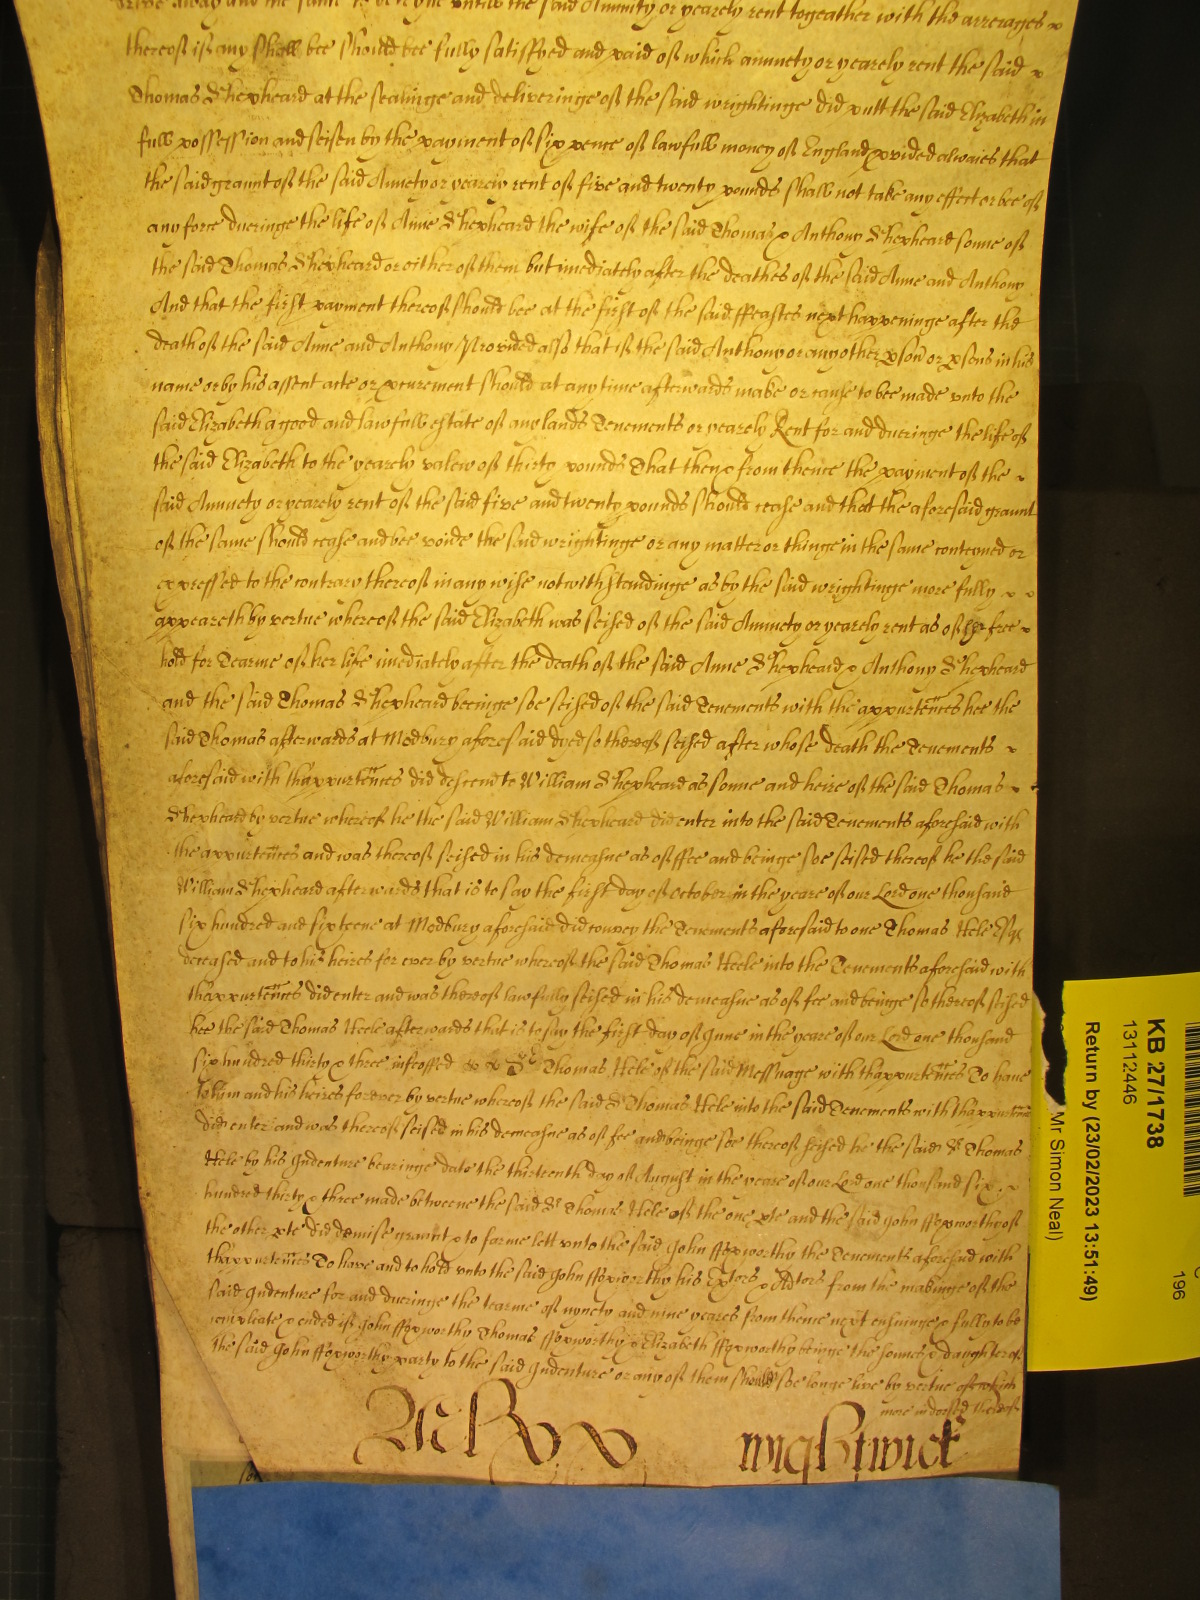 drive away and the same to deteyne untill the said Annuity or yearely rent togeather with the arrerages
thereof if any shall bee should bee fully satisfyed and paid of which annuety or yearely rent the said
Thomas Shepheard at the sealinge and deliveringe of the said wrightinge did putt the said Elizabeth in
full possession and seisen by the payment of six pence of lawfull money of England pvided alwaies that
the said graunt of the said Annuety or yearely rent of five and twenty pounds shall not take any effect or bee of
any force dueringe the life of Anne Shepheard the wife of the said Thomas & Anthony Shepheard sonne of
the said Thomas Shepheard or either of them but imediately after the deathes of the said Anne and Anthony
And that the first payment thereof should bee at the first of the said ffeastes next happeninge after the
death of the said Anne and Anthony Provided also that if the said Anthony or any other pson or psons in his
name or by his assent acte or pcurement should at any time afterwards make or cause to bee made unto the
said Elizabeth a good and lawfull estate of any lands Tenements or yearely Rent for and dueringe the life of
the said Elizabeth to the yearely valew of thirty pounds That then & from thence the payment of the
said Annuety or yearely rent of the said five and twenty pounds should cease and that the aforesaid graunt
of the same should cease and bee voide the said wrightinge or any matter or thinge in the same conteyned or
expressed to the contrary thereof in any wise notwithstandinge as by the said wrightinge more fully
appeareth by vertue whereof the said Elizabeth was seised of the said Annuety or yearely rent as of her free
hold for Tearme of her life imediately after the death of the said Anne Shepheard & Anthony Shepheard
and the said Thomas Shepheard beeinge soe seised of the said Tenements with the appurtences hee the
said Thomas afterwards at Modbury aforesaid dyed so thereof seised after whose death the Tenements
aforesaid with thappurtences did descend to William Shepheard as sonne and heire of the said Thomas
Shepheard by vertue whereof he the said William Shepheard did enter into the said Tenements aforesaid with
the appurtences and was thereof seised in his demeasne as of ffee and beinge soe seised thereof he the said
William Shepheard afterwards that is to say the first day of October in the yeare of our Lord one thousand
six hundred and sixteene at Modbury aforesaid did convey the Tenements aforesaid to one Thomas Hele Esqr
deceased and to his heires for ever by vertue whereof the said Thomas Heele into the Tenements aforesaid with
thappurtences did enter and was thereof lawfully seised in his demeasne as of fee and beinge so thereof seised
hee the said Thomas Heele afterwards that is to say the first day of June in the yeare of our Lord one thousand
six hundred thirty & three infeoffed Sr Thomas Hele of the said Messuage with thappurtences To have
To him and his heires forever by vertue whereof the said Sr Thomas Hele into the said Tenements with thappurtences
did enter and was thereof seised in his demeasne as of fee and beinge soe thereof seised he the said Sr Thomas
Hele by his Indenture bearinge date the thirteenth day of August in the yeare of our Lord one thousand six
hundred thirty & three made betweene the said Sr Thomas Hele of the one pte and the said John ffoxworthy of
the other pte did demise graunt & to farme lett unto the said John ffoxworthy the Tenements aforesaid with
thappurtences To have and to hold unto the said John ffoxworthy his Extors & Adtors from the makinge of the
said Indenture for and dueringe the tearme of nynety and nine yeares from thence next ensuinge & fully to be
compleate & ended if John ffoxworthy Thomas ffoxworthy & Elizabeth ffoxworthy beinge the sonnes & daughter of
the said John ffoxworthy party to the said Indenture or any of them should soe longe live by vertue of which
more indorsed thereof
wightwick
KB 27/1738
13112446
Return by (23/02/2023 13:51:49)
Mr Simon Neal)
196